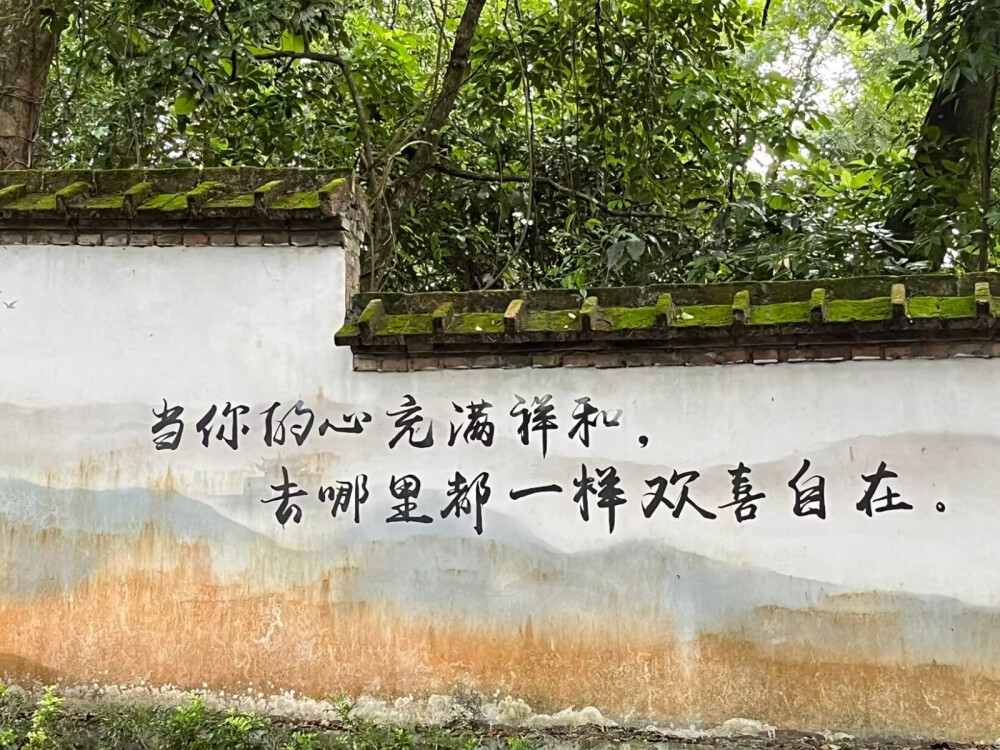 当你的心充满祥和，
去哪里都一样欢喜自在。